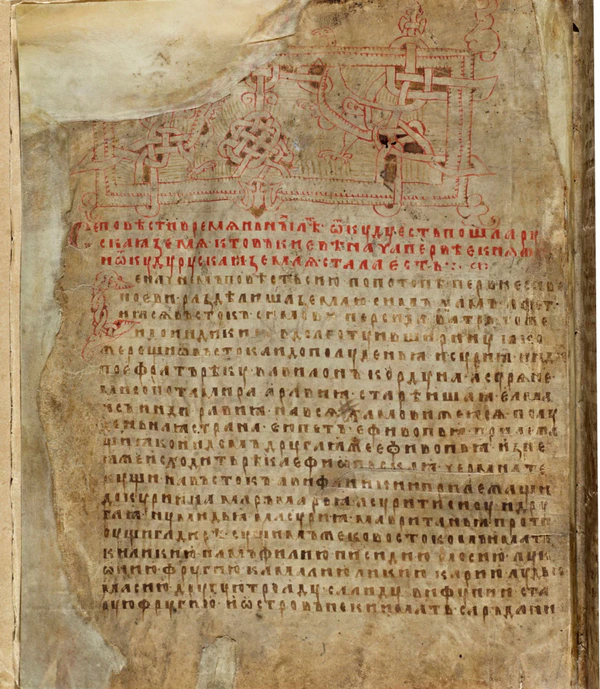 Се повѣсти времѧньны лѣ ѿкуду єсть пошла ру
скаꙗ земѧ кто въ києвѣ нача первѣє кнѧ
и ѿкуду рускаꙗ землѧ стала єсть
Се начнемъ повѣсть сию по потопѣ первиє снве
ноєви раздѣлиша землю симъ хамъ афет
и ꙗсѧ въстокъ симови персида ватрь тоже
и до индикиꙗ в долготу и в ширину ꙗко
же рещи ѿ въстока и до полуденьꙗ и сурию инди
по єфратъ рѣку вавилонъ кордуна асурѧне
мисопотамира аравиꙗ старѣишаꙗ єлма
исъ инди равиꙗ на всѧ хамови же ꙗсѧ полу
деньнаꙗ страна єюпетъ єфивопьꙗ прилежа
щиꙗ ко индомъ другаꙗ же єфивопьꙗ из неꙗ
же исходить рѣка єфиѡпьскаꙗ чермна те
кущи на въстокъ
куриниꙗ мармарьꙗ асурити дру
гаꙗ нумидьꙗ масуриꙗ мавританьꙗ проти
ву сущи гадирѣ сущимъ же ко востокомъ имать
киликию памъфилию писидию мосию лук
ѡнию фругию камалию ликию карию лудью
масию другую троаду солиду вифунию ста
рую фругию и ѡстровъ неки имать сардани